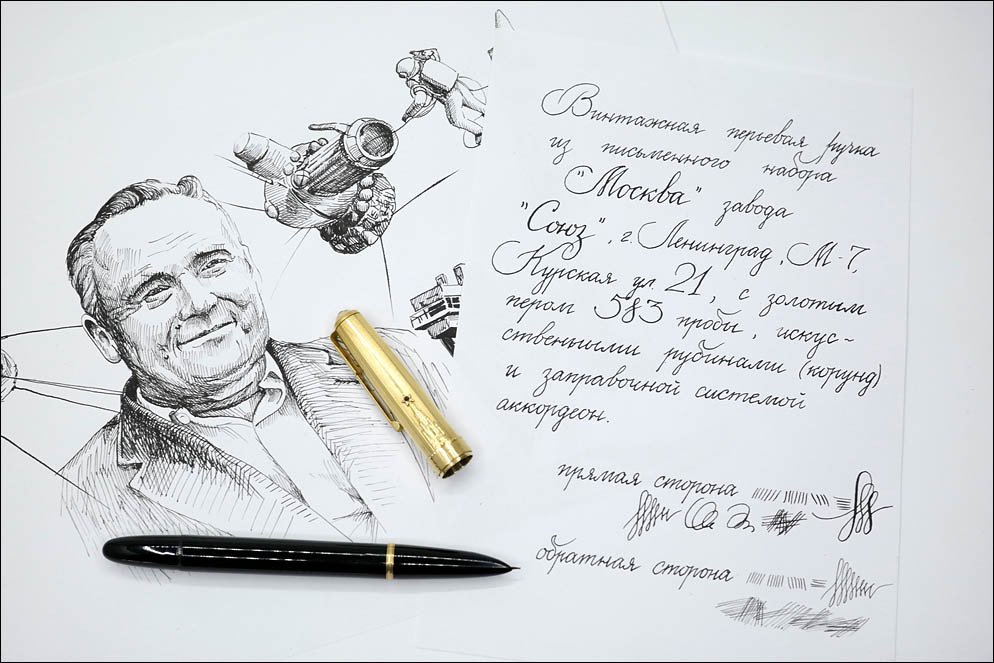 Винтажная перьевая ручка
из письменного набора
"Москва" завода
"Союз", г. Ленинград, М-7,
Курская ул. 21, с золотым
пером 583 пробы, искус-
ственными рубинами (корунд)
и заправочной системой
аккордеон.
прямая сторона
обратная сторона